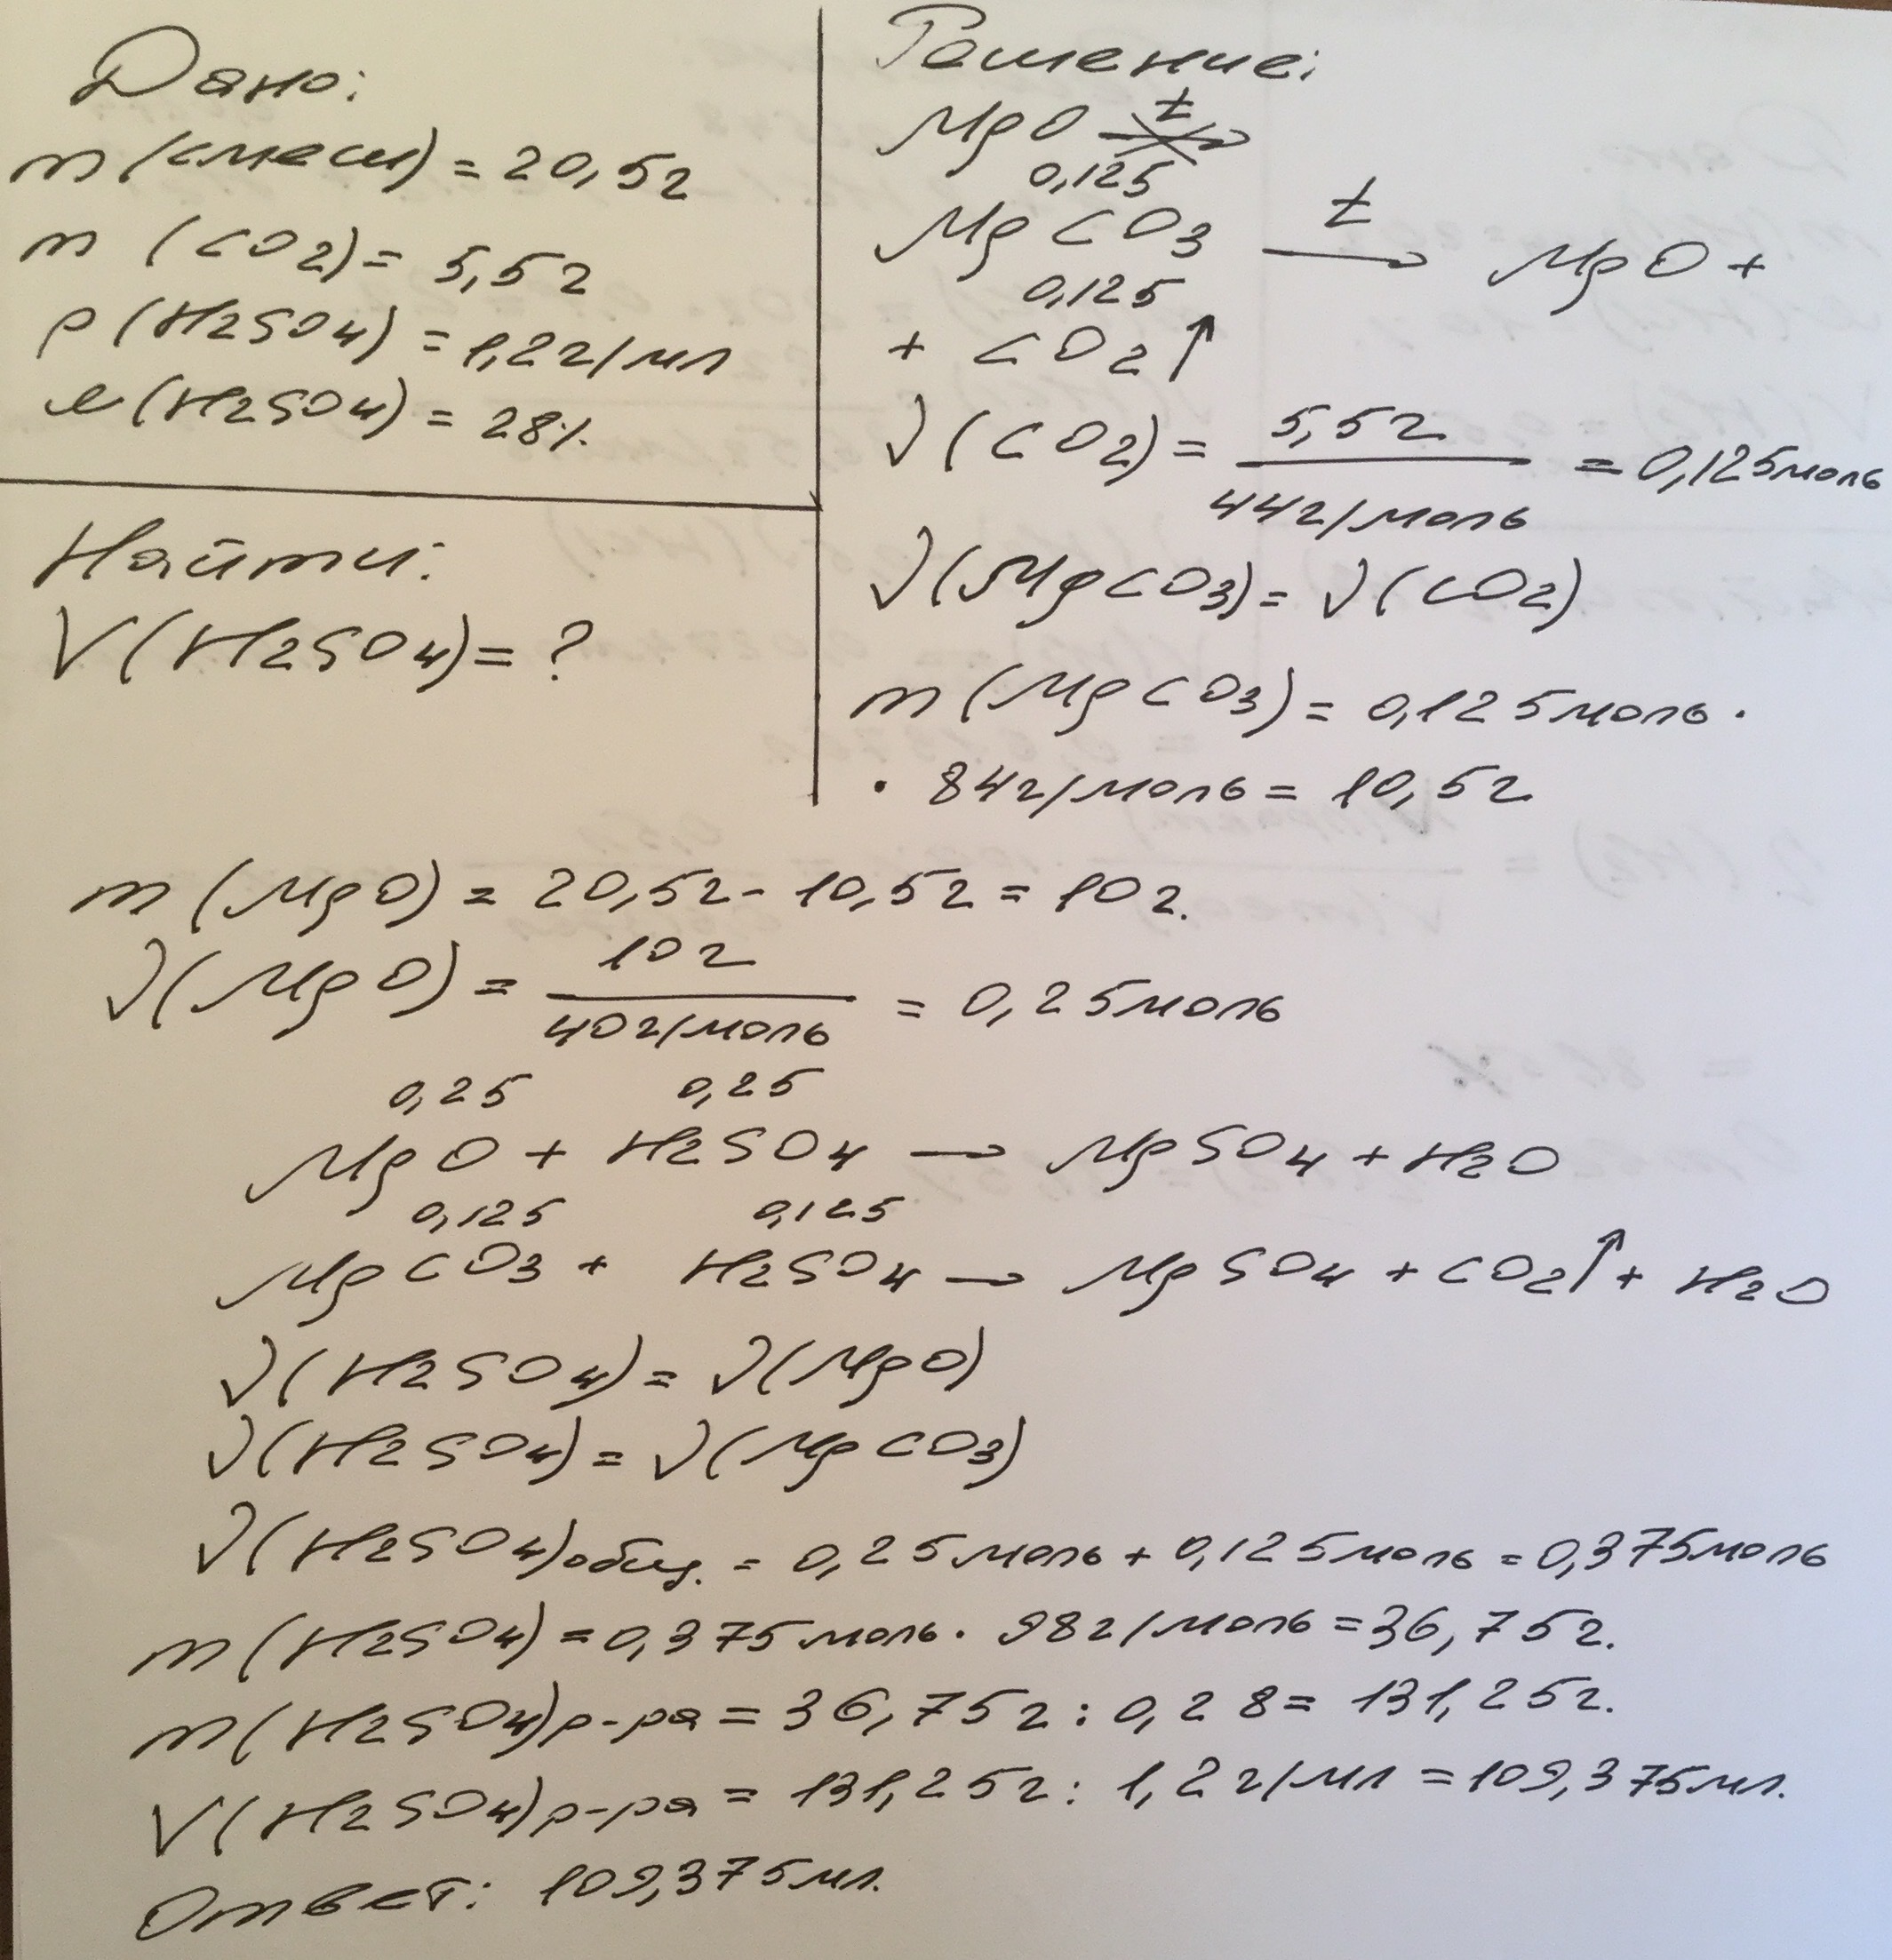 Дано:
m (смеси) = 20,5г
m (CO2) = 5,5г
ρ (H2SO4) = 1,2г/мл
ω (H2SO4) = 28%
Найти:
V (H2SO4) = ?
Решение:
MgO t
0,125
MgCO3 t → MgO +
0,125
+ CO2 ↑
ν (CO2) = 5,5г / 44г/моль = 0,125моль
ν (MgCO3) = ν (CO2)
m (MgCO3) = 0,125моль ·
· 84г/моль = 10,5г
m (MgO) = 20,5г - 10,5г = 10г.
ν (MgO) = 10г / 40г/моль = 0,25моль
0,25 0,25
MgO + H2SO4 → MgSO4 + H2O
0,125 0,125
MgCO3 + H2SO4 → MgSO4 + CO2↑ + H2O
ν (H2SO4) = ν (MgO)
ν (H2SO4) = ν (MgCO3)
ν (H2SO4)общ. = 0,25моль + 0,125моль = 0,375моль
m (H2SO4) = 0,375моль · 98г/моль = 36,75г.
m (H2SO4)р-ра = 36,75г : 0,28 = 131,25г.
V (H2SO4)р-ра = 131,25г : 1,2г/мл = 109,375мл.
Ответ: 109,375мл.